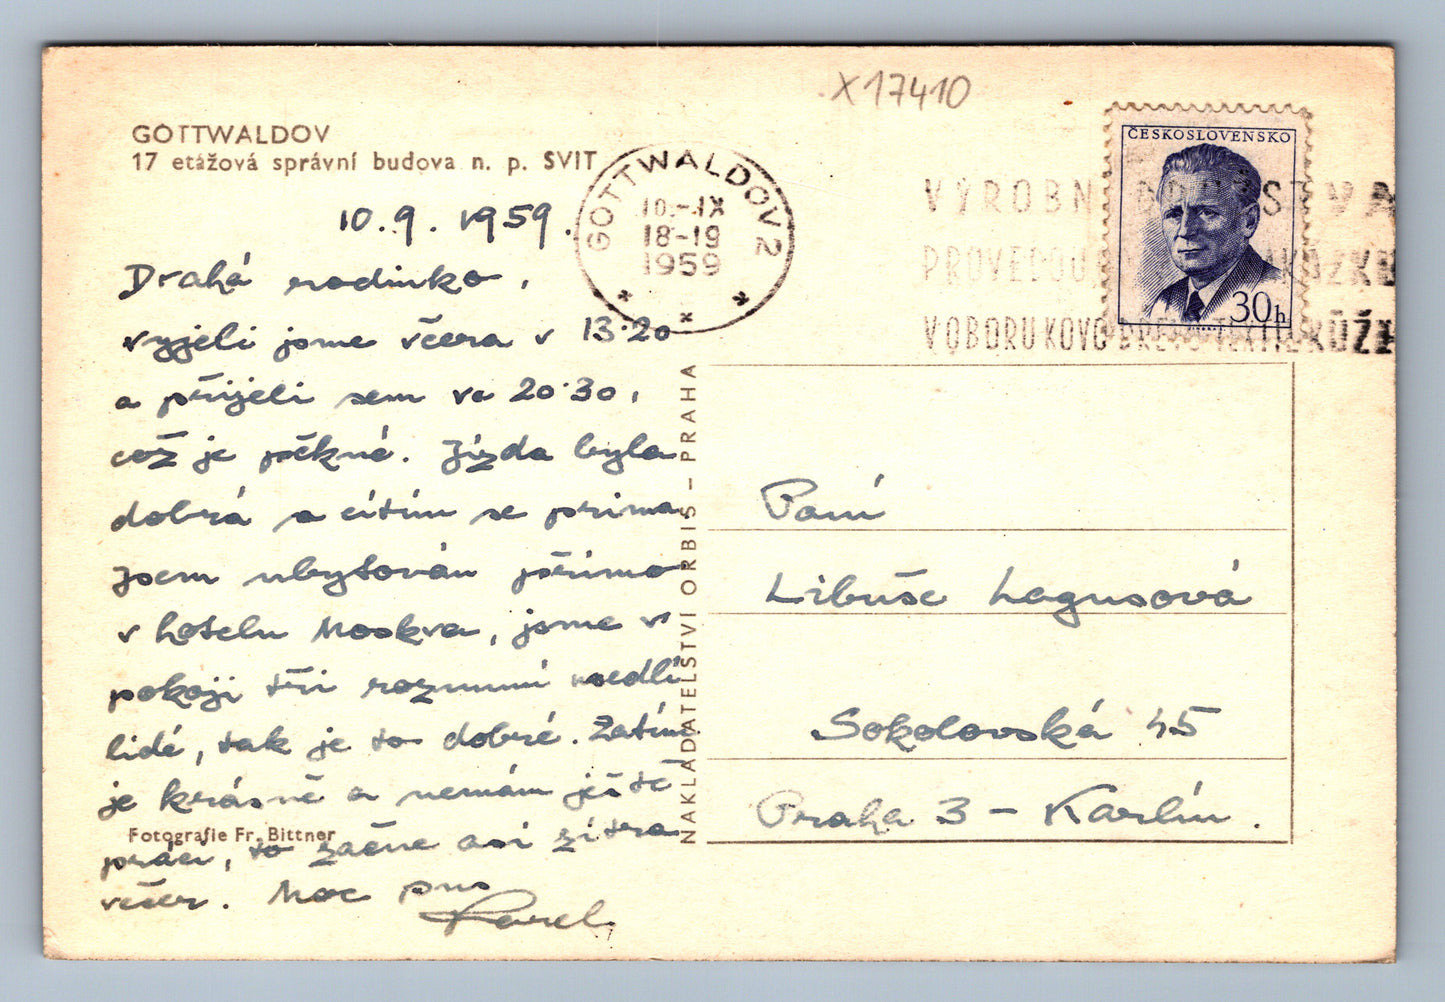 X17410
GOTTWALDOV
17 etážová správní budova n. p. SVIT
GOTTWALDOV 2
10.-IX
18-19
1959
ČESKOSLOVENSKO
30h
VÝROBN
PROVEDOU
V OBORU KOVO DŘEVO TEXTIL KŮŽE
10.9.1959.
Drahá rodinko,
vyjeli jsme včera v 13·20
a přijeli sem ve 20·30,
což je pěkné. Jízda byla
dobrá a cítím se prima
jsem ubytován přímo
v hotelu Moskva, jsme v
pokoji tři rozumní usedlí
lidé, tak je to dobré. Zatím
je krásně a nemám ještě
práci, to začne asi zítra
večer. Moc pus
Karel
Fotografie Fr. Bittner
NAKLADATELSTVÍ ORBIS – PRAHA
Paní
Libuše Lagusová
Sokolovská 45
Praha 3 – Karlín.